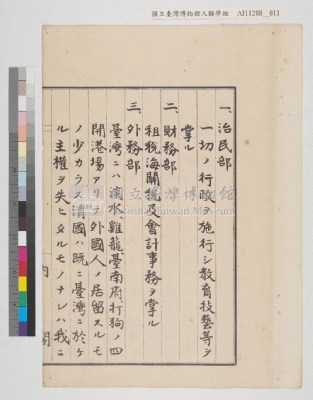 國立臺灣博物館人類學組 AH1208__011
一、治民部
一切ノ行政ヲ施行シ教育技藝等ヲ
掌ル
二、財務部
租税海關税及會計事務ヲ掌ル
三、外務部
臺灣ニハ淡水、雞籠、臺南府、打狗ノ四
開港場アリテ外國人ノ居留スルモ
ノ少カラス清國ハ既ニ臺灣ニ於ケ
ル主權ヲ失ヒタルモノナレハ我ニ
內閣